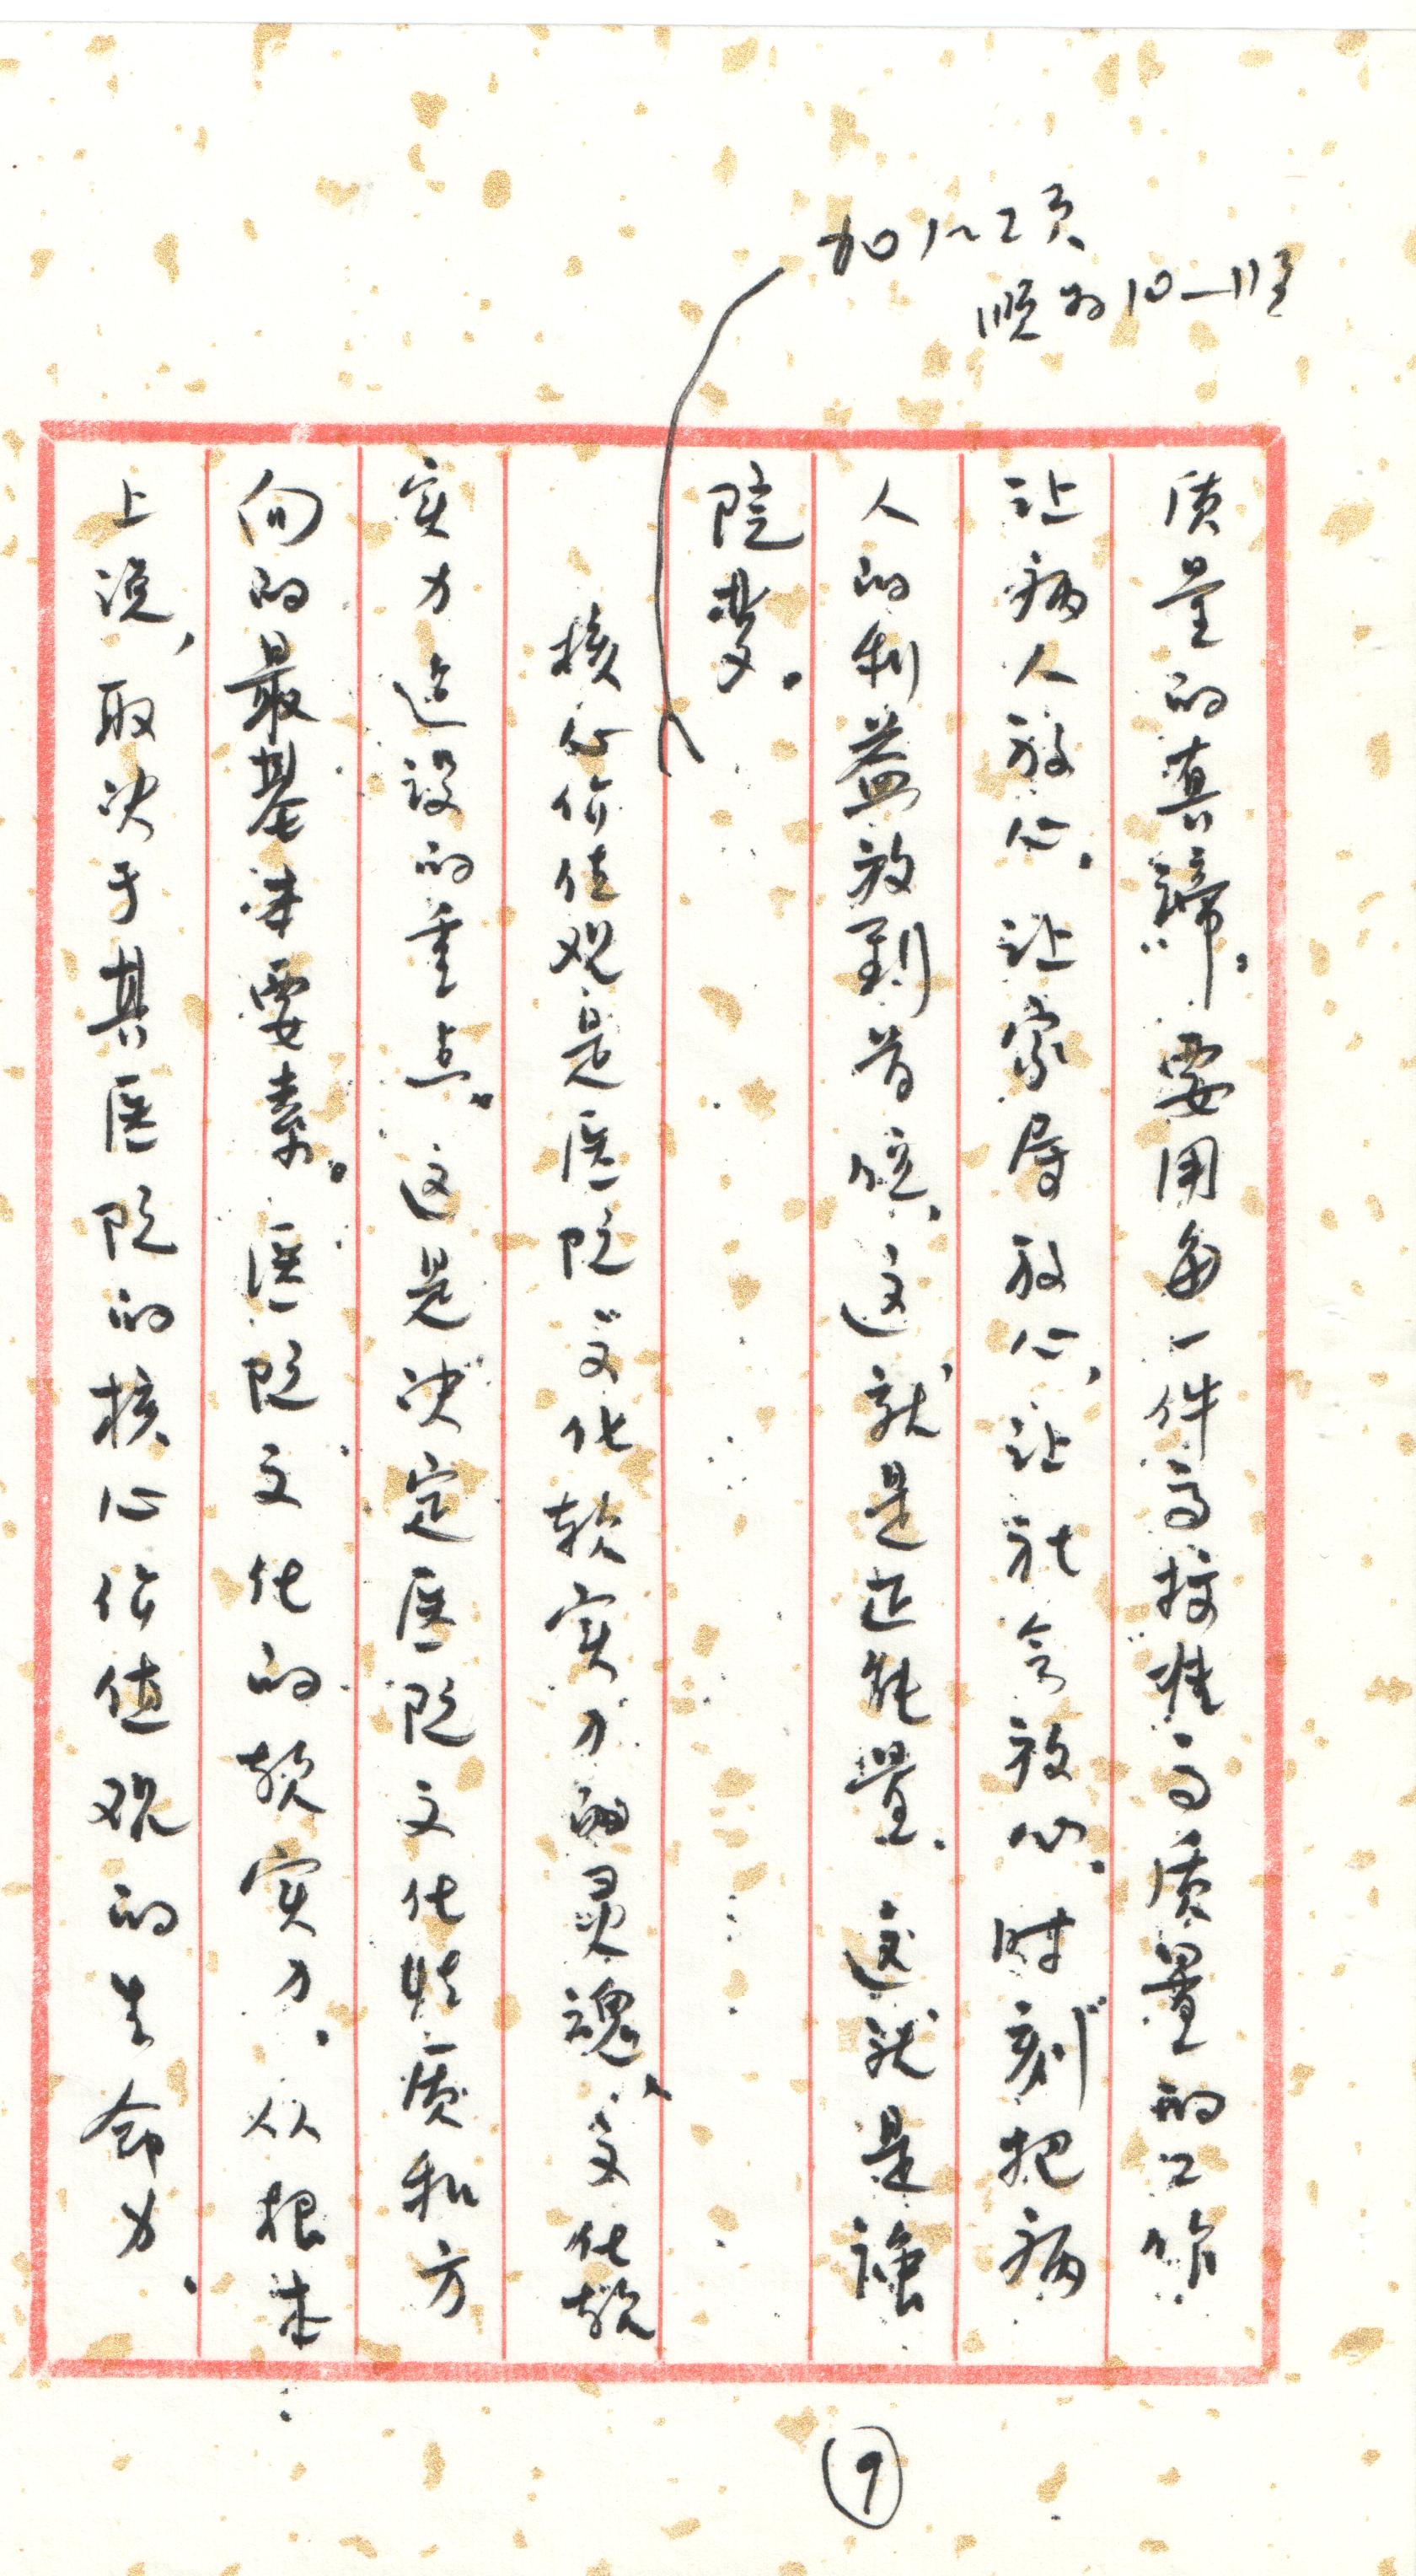 加1~2页
顺为10—11页
质量的真谛。要用每一件高标准高质量的工作
让病人放心，让家属放心，让社会放心。时刻把病
人的利益放到首位，这就是正能量。这就是强
院梦。
核心价值观是医院文化软实力的灵魂、文化软
实力建设的重点。这是决定医院文化性质和方
向的最基本要素。医院文化的软实力，从根本
上说，取决于其医院的核心价值观的生命力，
9